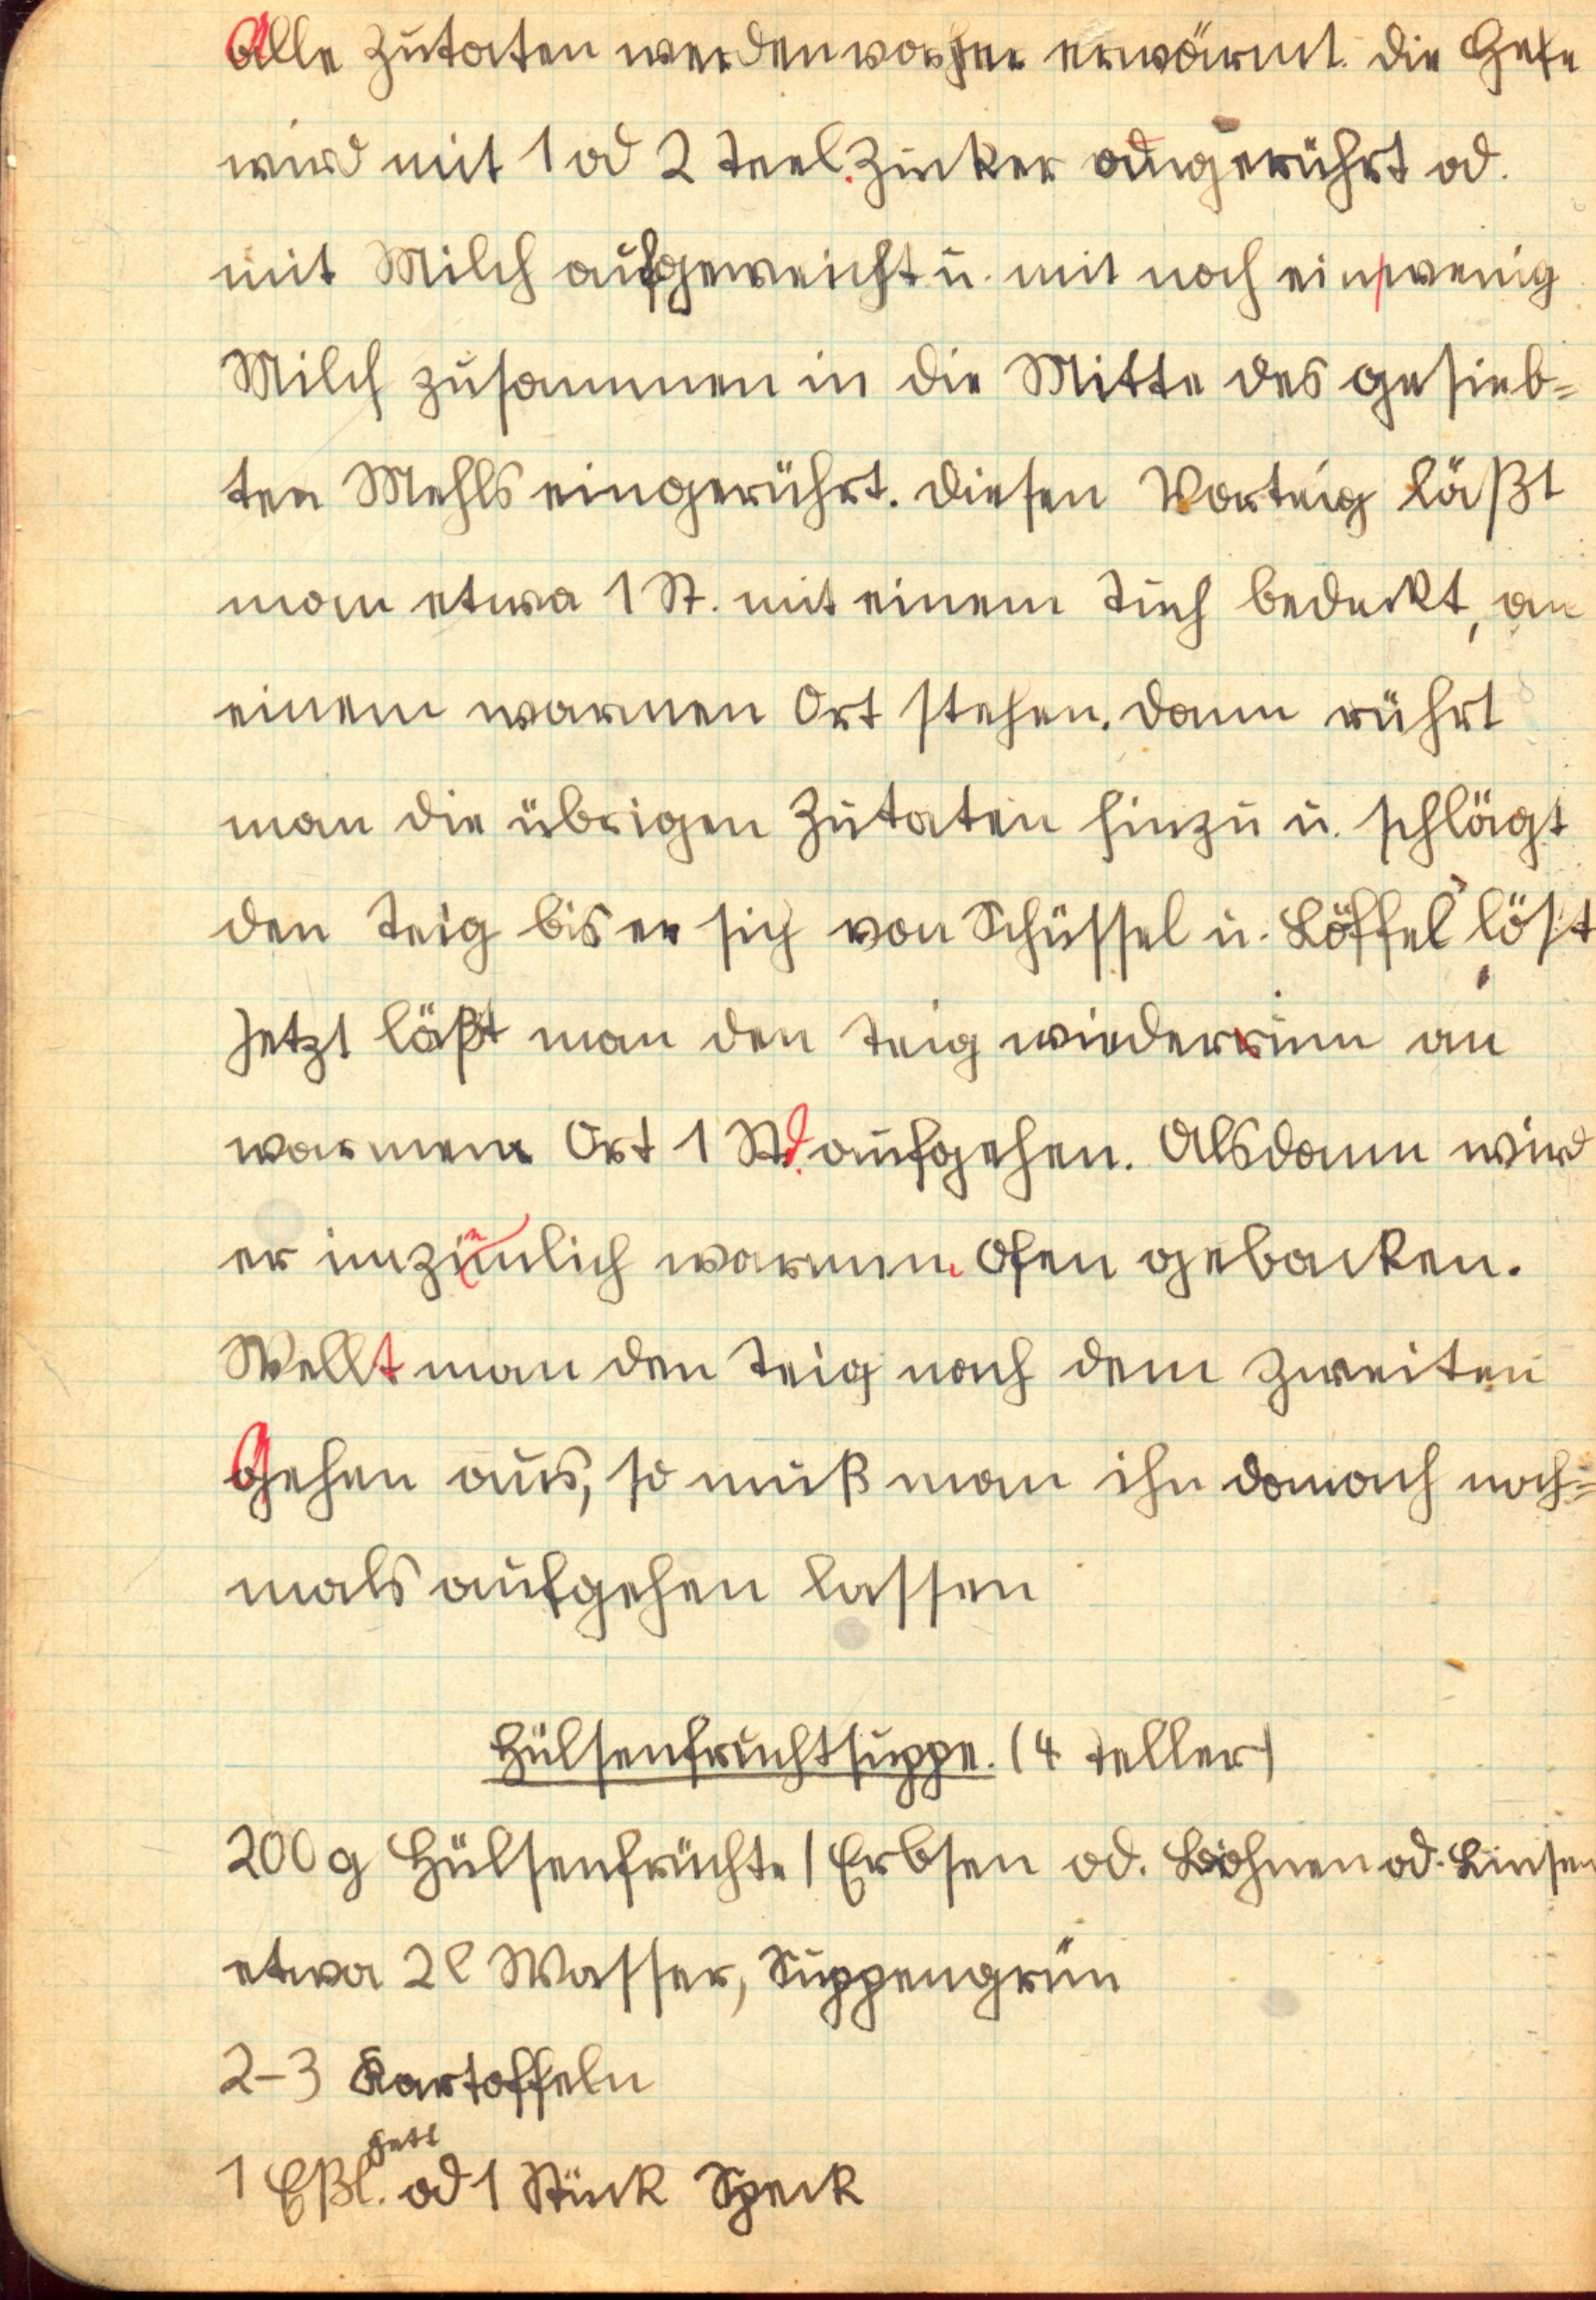 Alle Zutaten werden vorher erwärmt. Die Hefe
wird mit 1 od 2 Teel. Zucker angerührt od.
mit Milch aufgeweicht u. mit noch ein wenig
Milch zusammen in die Mitte des gesieb-
ten Mehls eingerührt. Diesen Vorteig läßt
man etwa 1 St. mit einem Tuch bedeckt, an
einem warmen Ort stehen. Dann rührt
man die übrigen Zutaten hinzu u. schlägt
den Teig bis er sich von Schüssel u. Löffel löst
Jetzt läßt man den Teig wiederum an
warmem Ort 1 Std. aufgehen. Alsdann wird
er im ziemlich warmen Ofen gebacken.
Wellt man den Teig nach dem zweiten
Gehen aus, so muß man ihn danach noch-
mals aufgehen lassen
Hülsenfruchtsuppe. (4 Teller)
200 g Hülsenfrüchte (Erbsen od. Bohnen od. Linsen
etwa 2 l Wasser, Suppengrün
2-3 Kartoffeln
1 Eßl. Fett od 1 Stück Speck